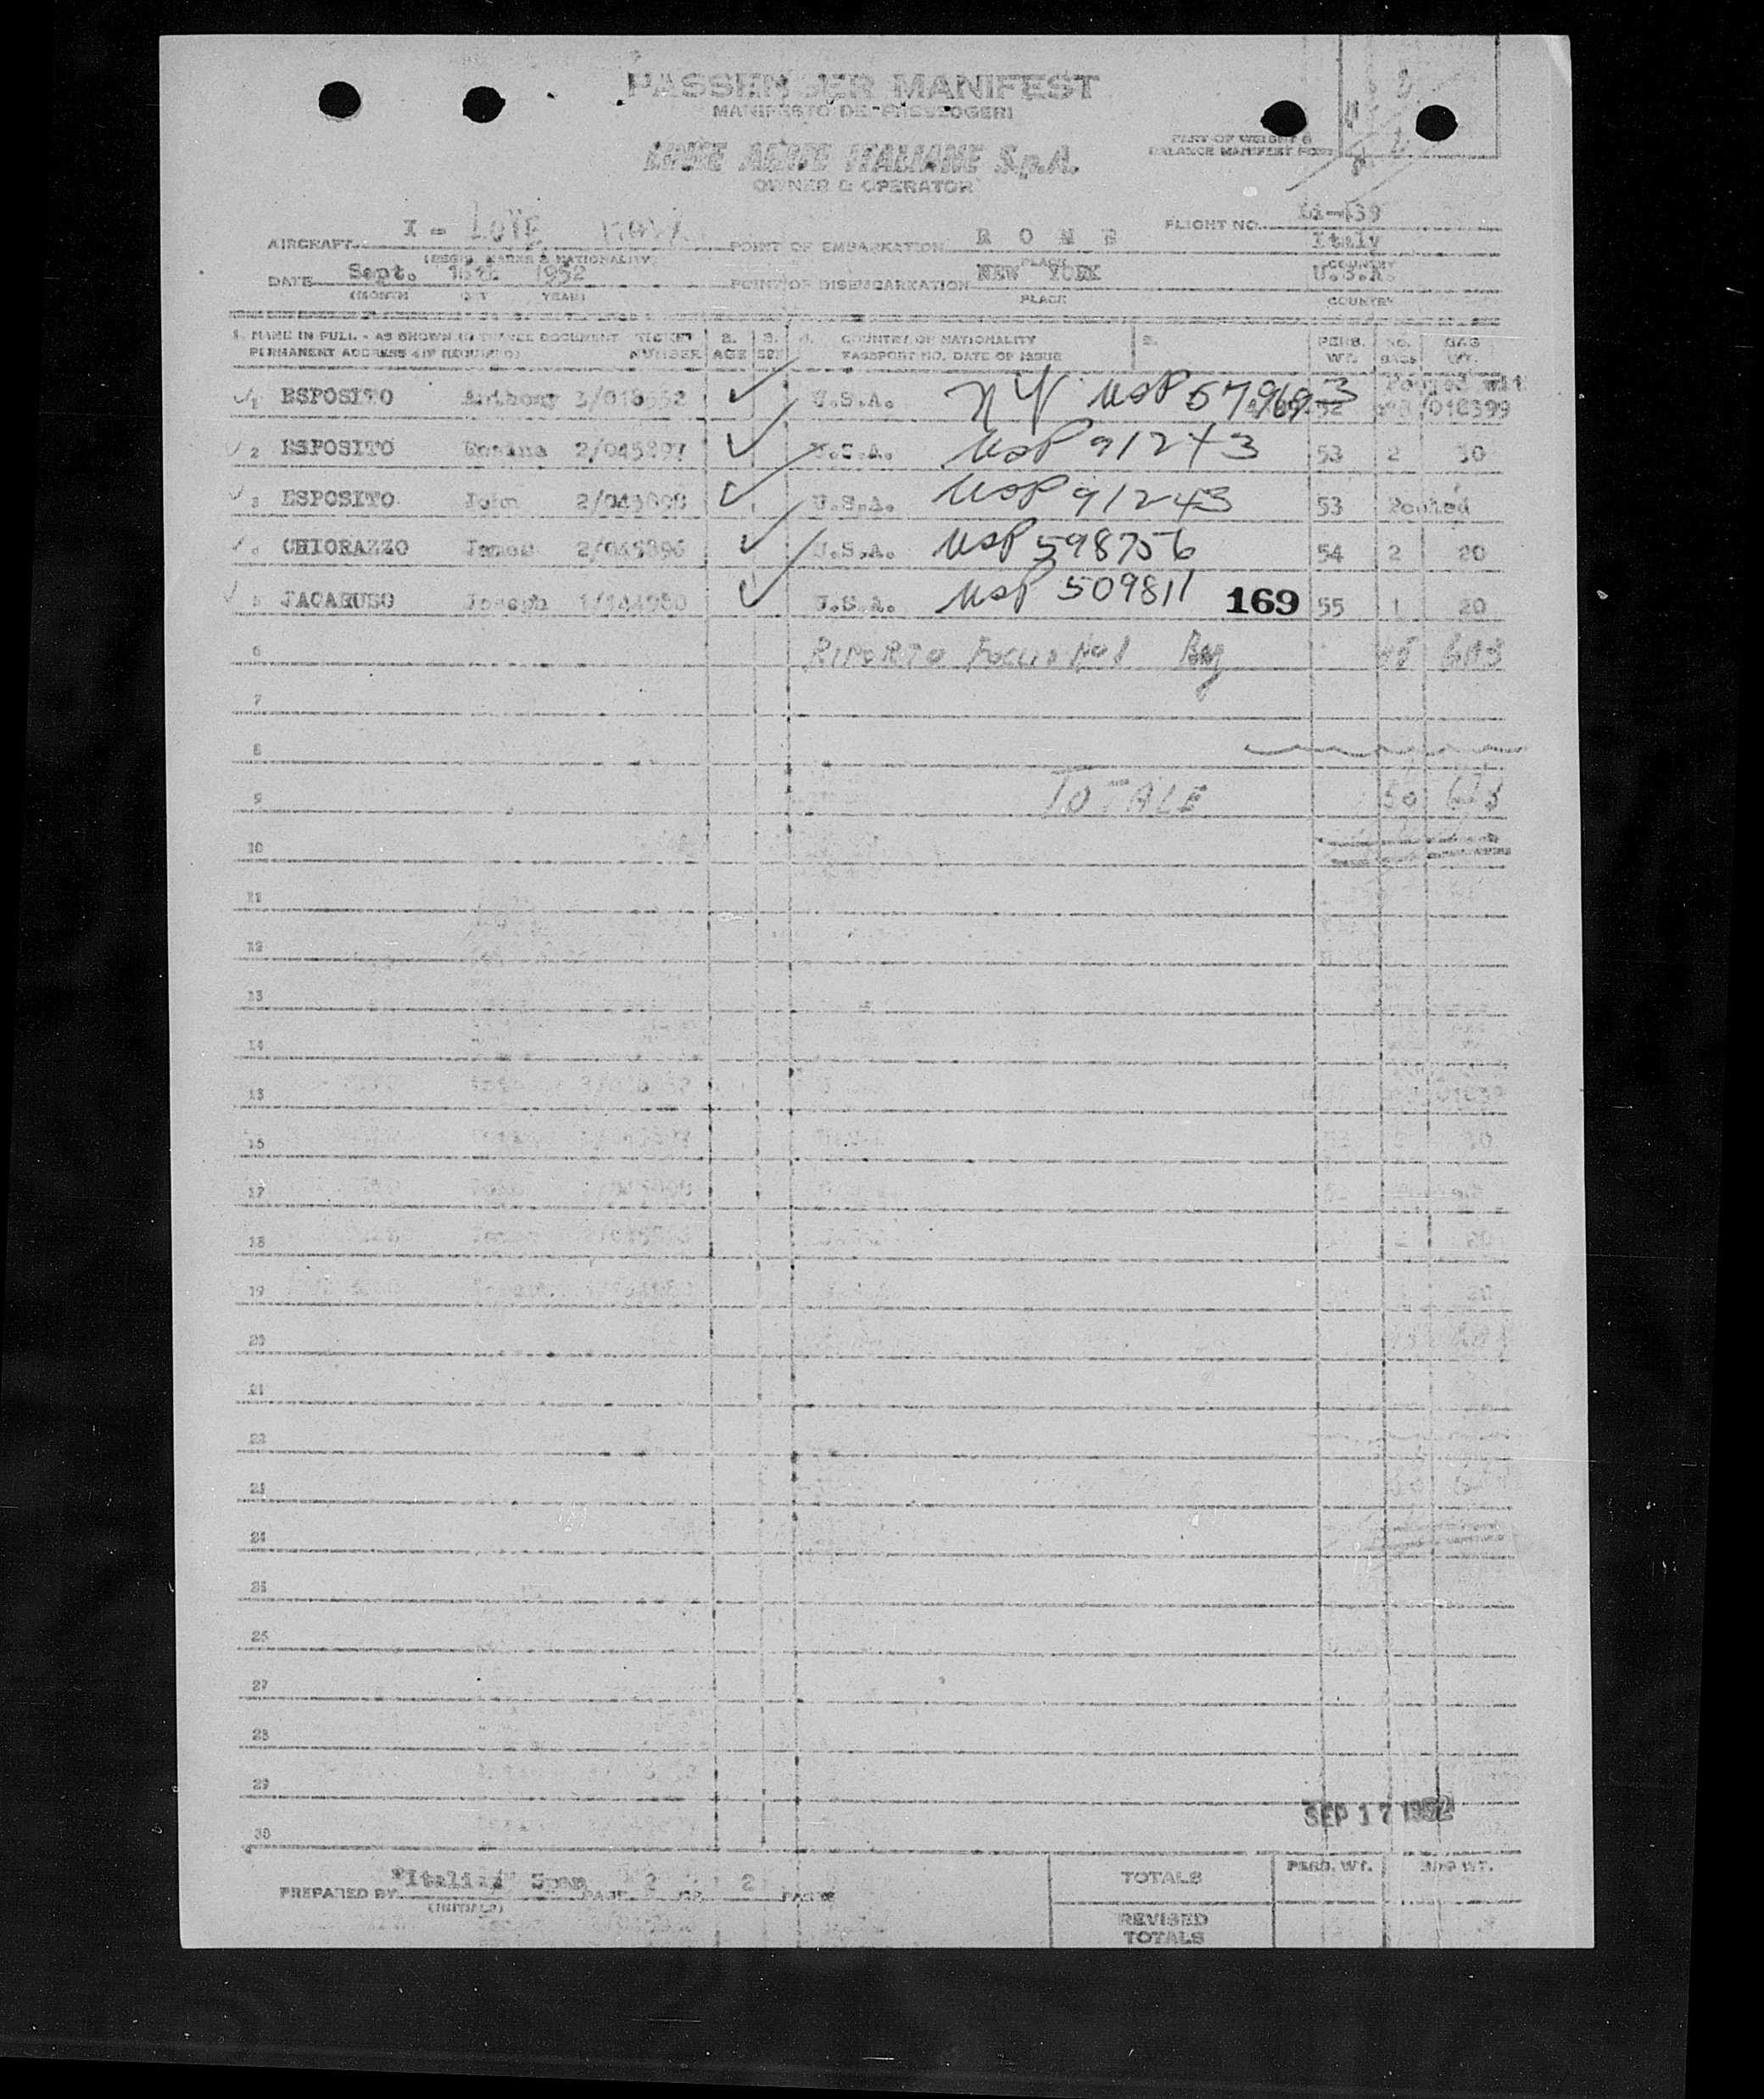 PASSENGER MANIFEST
MANIFESTO DEI PASSEGGERI
PART OF WEIGHT &
BALANCE MANIFEST FORM
LINEE AEREE ITALIANE S.p.A.
OWNER & OPERATOR
AIRCRAFT I - LOVE POINT OF EMBARKATION R O M E FLIGHT NO. Italy
(REGIS. MARKS & NATIONALITY) PLACE COUNTRY
DATE Sept. 1952 POINT OF DISEMBARKATION NEW YORK U.S.A.
(MONTH DAY YEAR) PLACE COUNTRY
1. NAME IN FULL - AS SHOWN IN TRAVEL DOCUMENT TICKET 2. 3. 4. COUNTRY OF NATIONALITY 5. PERS. NO. BAG
PERMANENT ADDRESS (IF REQUIRED) NUMBER AGE SEX PASSPORT NO. DATE OF ISSUE WT. BAGS WT.
1 ESPOSITO Anthony U.S.A. NY USP Pooled wit
018399
2 ESPOSITO Rosina 2/045897 U.S.A. USP 91243 53 2 30
3 ESPOSITO John 2/045898 U.S.A. USP 91243 53 Pooled
4 CHIORAZZO James 2/045896 U.S.A. USP 598756 54 2 20
5 JACARUSO Joseph U.S.A. USP 509811 169 55 1 20
6 RIPORTO FOGLIO No 1
7
8
9 TOTALE 50
10
11
12
13
14
15
16
17
18
19
20
21
22
23
24
25
26
27
28
29
SEP 17 1952
30
PREPARED BY PAGE 2 OF 2 PAGES
(INITIALS)
TOTALS PERS. WT. BAG WT.
REVISED
TOTALS